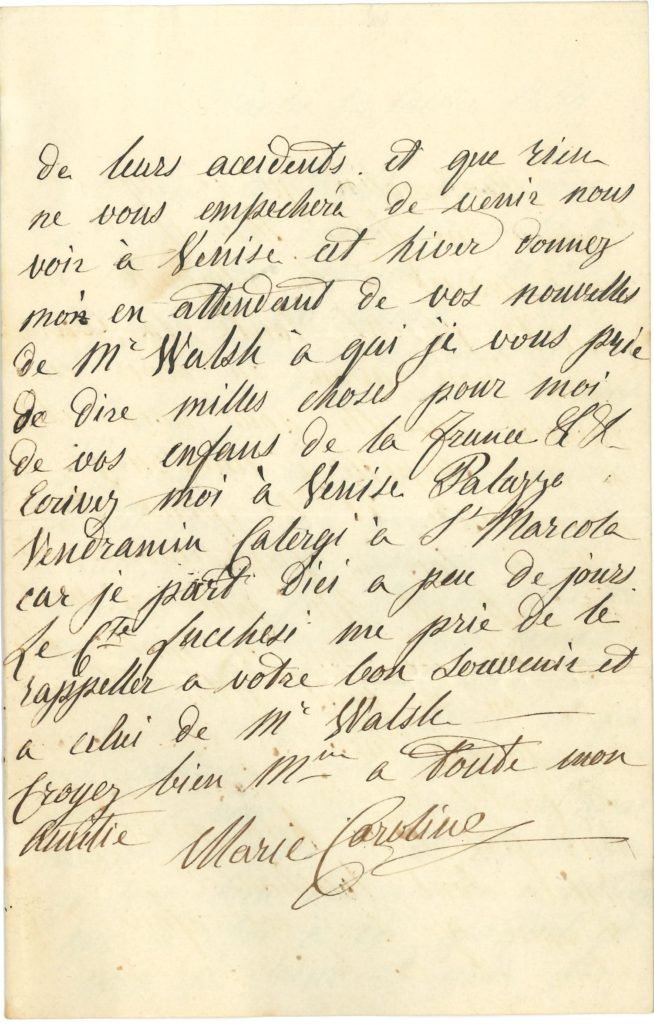 de leurs accidents. et que rien
ne vous empechera de venir nous
voir à Venise cet hiver donnez
moi en attendant de vos nouvelles
de Mr Walsh à qui je vous prie
de dire milles choses pour moi
de vos enfans de la france & &
Ecrivez moi à Venise Palazzo
Vendramin Calergi à St Marcola
car je part Dici a peu de jours.
Le Cte Lucchesi me prie de le
rappeller a votre bon souvenir et
a celui de Mr Walsh
Croyez bien Mme a toute mon
amitie Marie Caroline